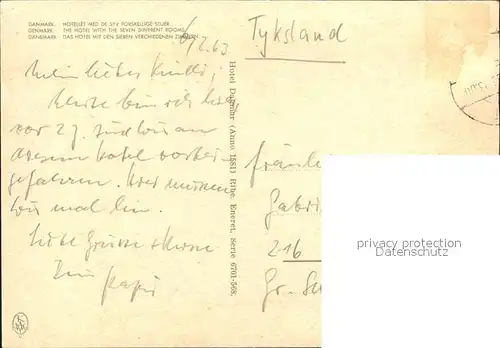 DANMARK. HOTELLET MED DE SYV FORSKELLIGE STUER.
DENMARK. THE HOTEL WITH THE SEVEN DIFFERENT ROOMS.
DÄNEMARK. DAS HOTEL MIT DEN SIEBEN VERSCHIEDENEN ZIMMERN.
2.63
Tyksland
Mein liebes Kindli,
Heute bin ich hier
vor 2 J. sind wir an
diesem Hotel vorbei
gefahren. Hier müssen
wir mal hin.
Liebe Grüsse + Küsse
Dein Papi
Hotel Dagmar (Anno 1581) Ribe. Eneret. Serie 6701-568.
Fräulei
Gabri
216
Gr-
privacy protection
Datenschutz